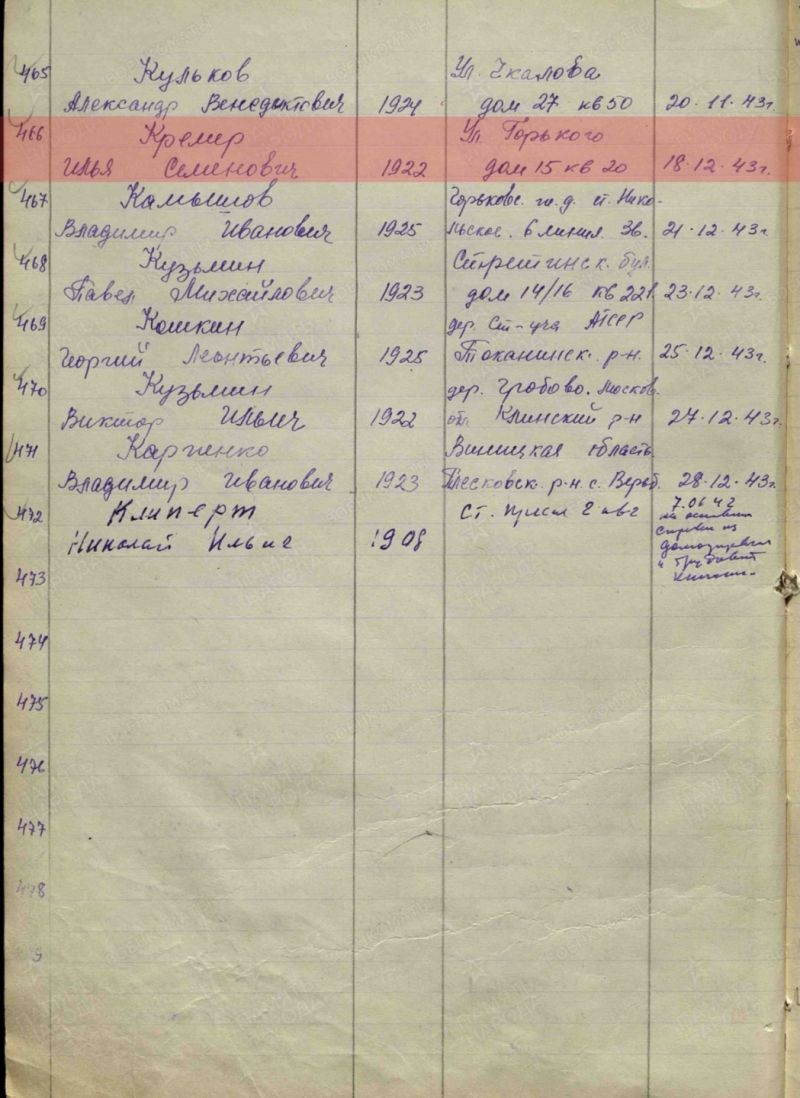 465 Кульков Ул. Чкалова
Александр Венедиктович 1924 дом 27 кв 50 20.11.43г.
466 Кремер Ул Горького
Илья Семенович 1922 дом 15 кв 20 18.12.43г.
467 Камышов Горьковс. ж.д. ст. Нико-
Владимир Иванович 1925 льское. 6 линия 36. 21.12.43г
468 Кузьмин Сретинск. бул.
Павел Михайлович 1923 дом 14/16 кв 221 23.12.43г.
469 Кошкин дер.
Георгий Леонтьевич 1925 р-н. 25.12.43г.
470 Кузьмин дер. Московс.
Виктор Ильич 1922 обл Клинский р-н 27.12.43г.
471 Карпенко Виницкая область
Владимир Иванович 1923 р-н. с. 28.12.43г.
472 Клиперт ст.
Николай Ильич 1908
7.06 42
на основан
справки из
домоуправл
и трудовой
книжки.
473
474
475
476
477
478
9